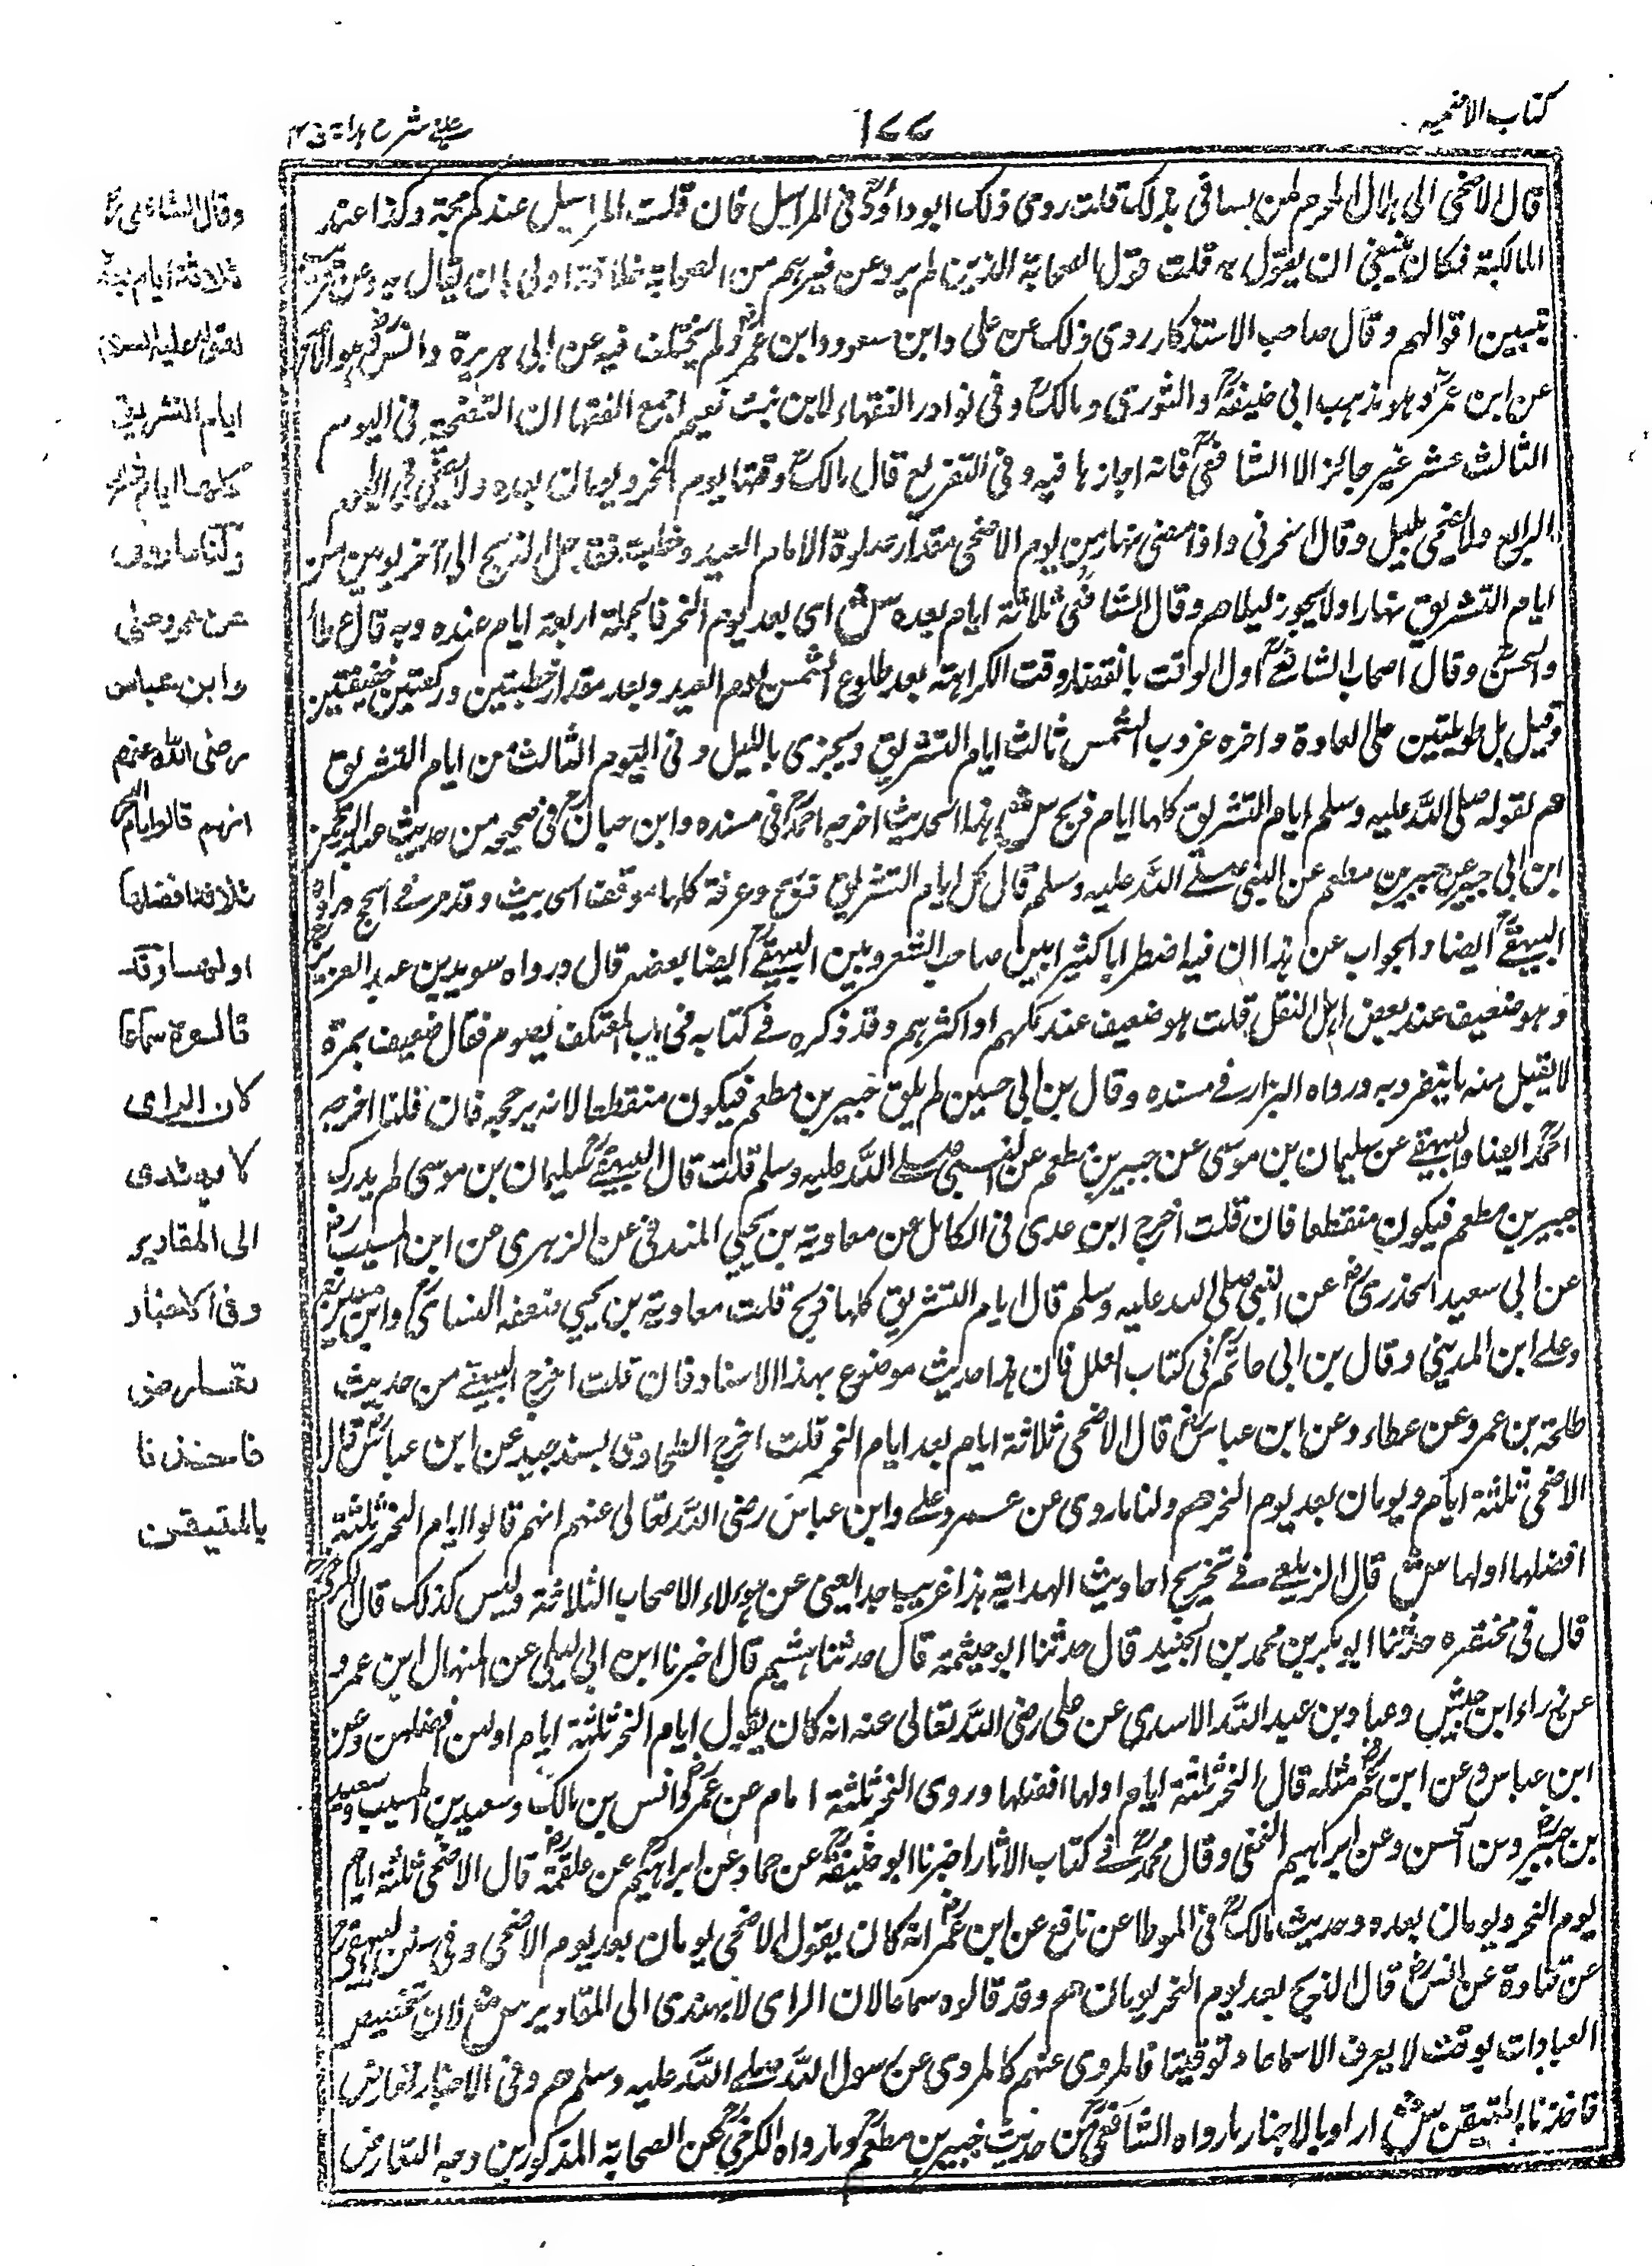 كتاب الاضحيه
١٧٧
عینی شرح ہدایۃ ج ٤
قال الاضحى الى هلال المحرم لمن يسافى بذلك قلت روى ذلك ابوداود فى المراسيل فان قلت المراسيل عندكم حجة وكذا عند
المالكية فكان ينبغى ان يقول به قلت قول الصحابة الذين لم يرد عن غيرهم من الصحابة خلافه اولى بان يقال به وعن قريب
تبيين اقوالهم وقال صاحب الاستذكار روى ذلك عن على وابن مسعود وابن عمر ولم يختلف فيه عن ابى هريرة وانس وهو الاصح
عن ابن عمر وهو مذهب ابى حنيفة والثورى ومالك وفى نوادر الفقهاء لابن بنت نعيم اجمع الفقها ان التضحية فى اليوم
الثالث عشر غير جائز الا الشافعى فانه اجازها فيه وفى التفريع قال مالك وقتها يوم النحر ويومان بعده ولا يضحى فى اليوم
الرابع ولا يضحى بليل وقال الخرقى واذا مضى نهار من يوم الاضحى مقدار صلوة الامام العيد وخطبته فقد حل الذبح الى آخر يومين من
ايام التشريق نهارا ولا يجوز ليلا هم وقال الشافعى ثلاثة ايام بعده ش اى بعد يوم النحر فالجملة اربعة ايام عنده وبه قال عطاء
والحسن وقال اصحاب الشافعى اول الوقت بانقضاء وقت الكراهة بعد طلوع الشمس يوم العيد وبعد مقدار خطبتين وركعتين خفيفتين
وقيل بل طويلتين على العادة واخره غروب الشمس ثالث ايام التشريق ويجزى بالليل وفى اليوم الثالث من ايام التشريق
هم لقوله صلى الله عليه وسلم ايام التشريق كلها ايام ذبح ش هذا الحديث اخرجه احمد فى مسنده وابن حبان فى صحيحه من حديث عبد الرحمن
ابن ابى حسين عن جبير بن مطعم عن النبى صلے اللہ عليه وسلم قال كل ايام التشريق ذبح وعرفة كلها موقف اى بيث وقد مر فے الحج ورواه
البيهقے ايضا والجواب عن هذا ان فيه اضطرابا كثيرا بين صاحب التنقيح وبين البيهقے ايضا بعضه قال ورواه سويد بن عبد العزيز
وهو ضعيف عند بعض اهل النقل قلت هو ضعيف عند كلهم او اكثرهم وقد ذكره فے كتابه فى باب المعتكف يصوم فقال ضعيف بمرة
لا يقبل منه ما يتفرد به ورواه البزار فے مسنده وقال بن ابى حسين لم يلق جبير بن مطعم فيكون منقطعا لانه يرحجه فان قلنا اخرجه
احمد ايضا والبيهقے عن سليمان بن موسى عن جبير بن مطعم عن النبى صلے اللہ عليه وسلم قلت قال البيهقے سليمان بن موسى لم يدرك
جبير بن مطعم فيكون منقطعا فان قلت اخرج ابن عدى فى الكامل عن معاوية بن يحيى المدنى عن الزهرى عن ابن المسيب
عن ابى سعيد الخدرى عن النبى صلى الله عليه وسلم قال ايام التشريق كلها ذبح قلت معاوية بن يحيى ضعفه النسائى وابن معين
وعلے ابن المدينى وقال بن ابى حاتم فى كتاب العلل قال هذا حديث موضوع بهذا الاسناد فان قلت اخرج البيهقے من حديث
طلحة بن عمرو عن عطاء وعن ابن عباس قال الاضحى ثلاثة ايام بعد ايام النحر قلت اخرج الطحاوى بسند جيد عن ابن عباس قال
الاضحى ثلثة ايام ويومان بعد يوم النحر هم ولنا ما روى عن عمر وعلے وابن عباس رضى اللہ تعالى عنهم انهم قالوا ايام النحر ثلثة
افضلها اولها ش قال الزيلعے فے تخريج احاديث الهداية هذا غريب جدا يعنى عن هؤلاء الاصحاب الثلاثة وليس كذلك قال الكرخى
قال فى مختصره حدثنا ابو بكر بن محمد بن الجنيد قال حدثنا ابو خيثمة قال حدثنا هشيم قال اخبرنا ابن ابى ليلى عن المنهال ابن عمرو
عن زراء ابن حبيش وعباد بن عبد اللہ الاسدى عن على رضى اللہ تعالى عنه انه كان يقول ايام النحر ثلثة ايام اولهن افضلهن وعن
ابن عباس وعن ابن عمر مثله قال النحر ثلثة ايام اولها افضلها وروى النحر ثلثة ايام عن عمر وانس بن مالك وسعيد بن المسيب وسعيد
بن جبير وعن الحسن وعن ابراهيم النخعى وقال محمد فے كتاب الاثار اخبرنا ابو حنيفة عن حماد عن ابراهيم عن علقمة قال الاضحى ثلثة ايام
يوم النحر ويومان بعده وحديث مالك فى الموطا عن نافع عن ابن عمر انه كان يقول الاضحى يومان بعد يوم الاضحى وفى سنن البيهقے
عن قتادة عن انس قال الذبح بعد يوم النحر يومان هم وقد قالوه سماعا لان الراى لا يهتدى الى المقادير ش لان تخصيص
العبادات بوقت لا يعرف الا سماعا وتوقيفا فالمروى عنهم كالمروى عن رسول اللہ صلے اللہ عليه وسلم هم وفى الاخبار تعارض
فاخذنا بالمتيقن ش اراد بالاخبار ما رواه الشافعى من حديث جبير بن مطعم وما رواه الكرخى عن الصحابة المذكورين وجه التعارض
وقال الشافعى
ثلاثة ايام بعده
لقوله عليه السلام
ايام التشريق
كلها ايام ذبح
ولنا ما روى
عن عمر وعلى
وابن عباس
رضى الله عنهم
انهم قالوا ايام النحر
ثلاثة افضلها
اولها وقد
قالوه سماعا
لان الراى
لا يهتدى
الى المقادير
وفى الاخبار
تعارض
فاخذنا
بالمتيقن